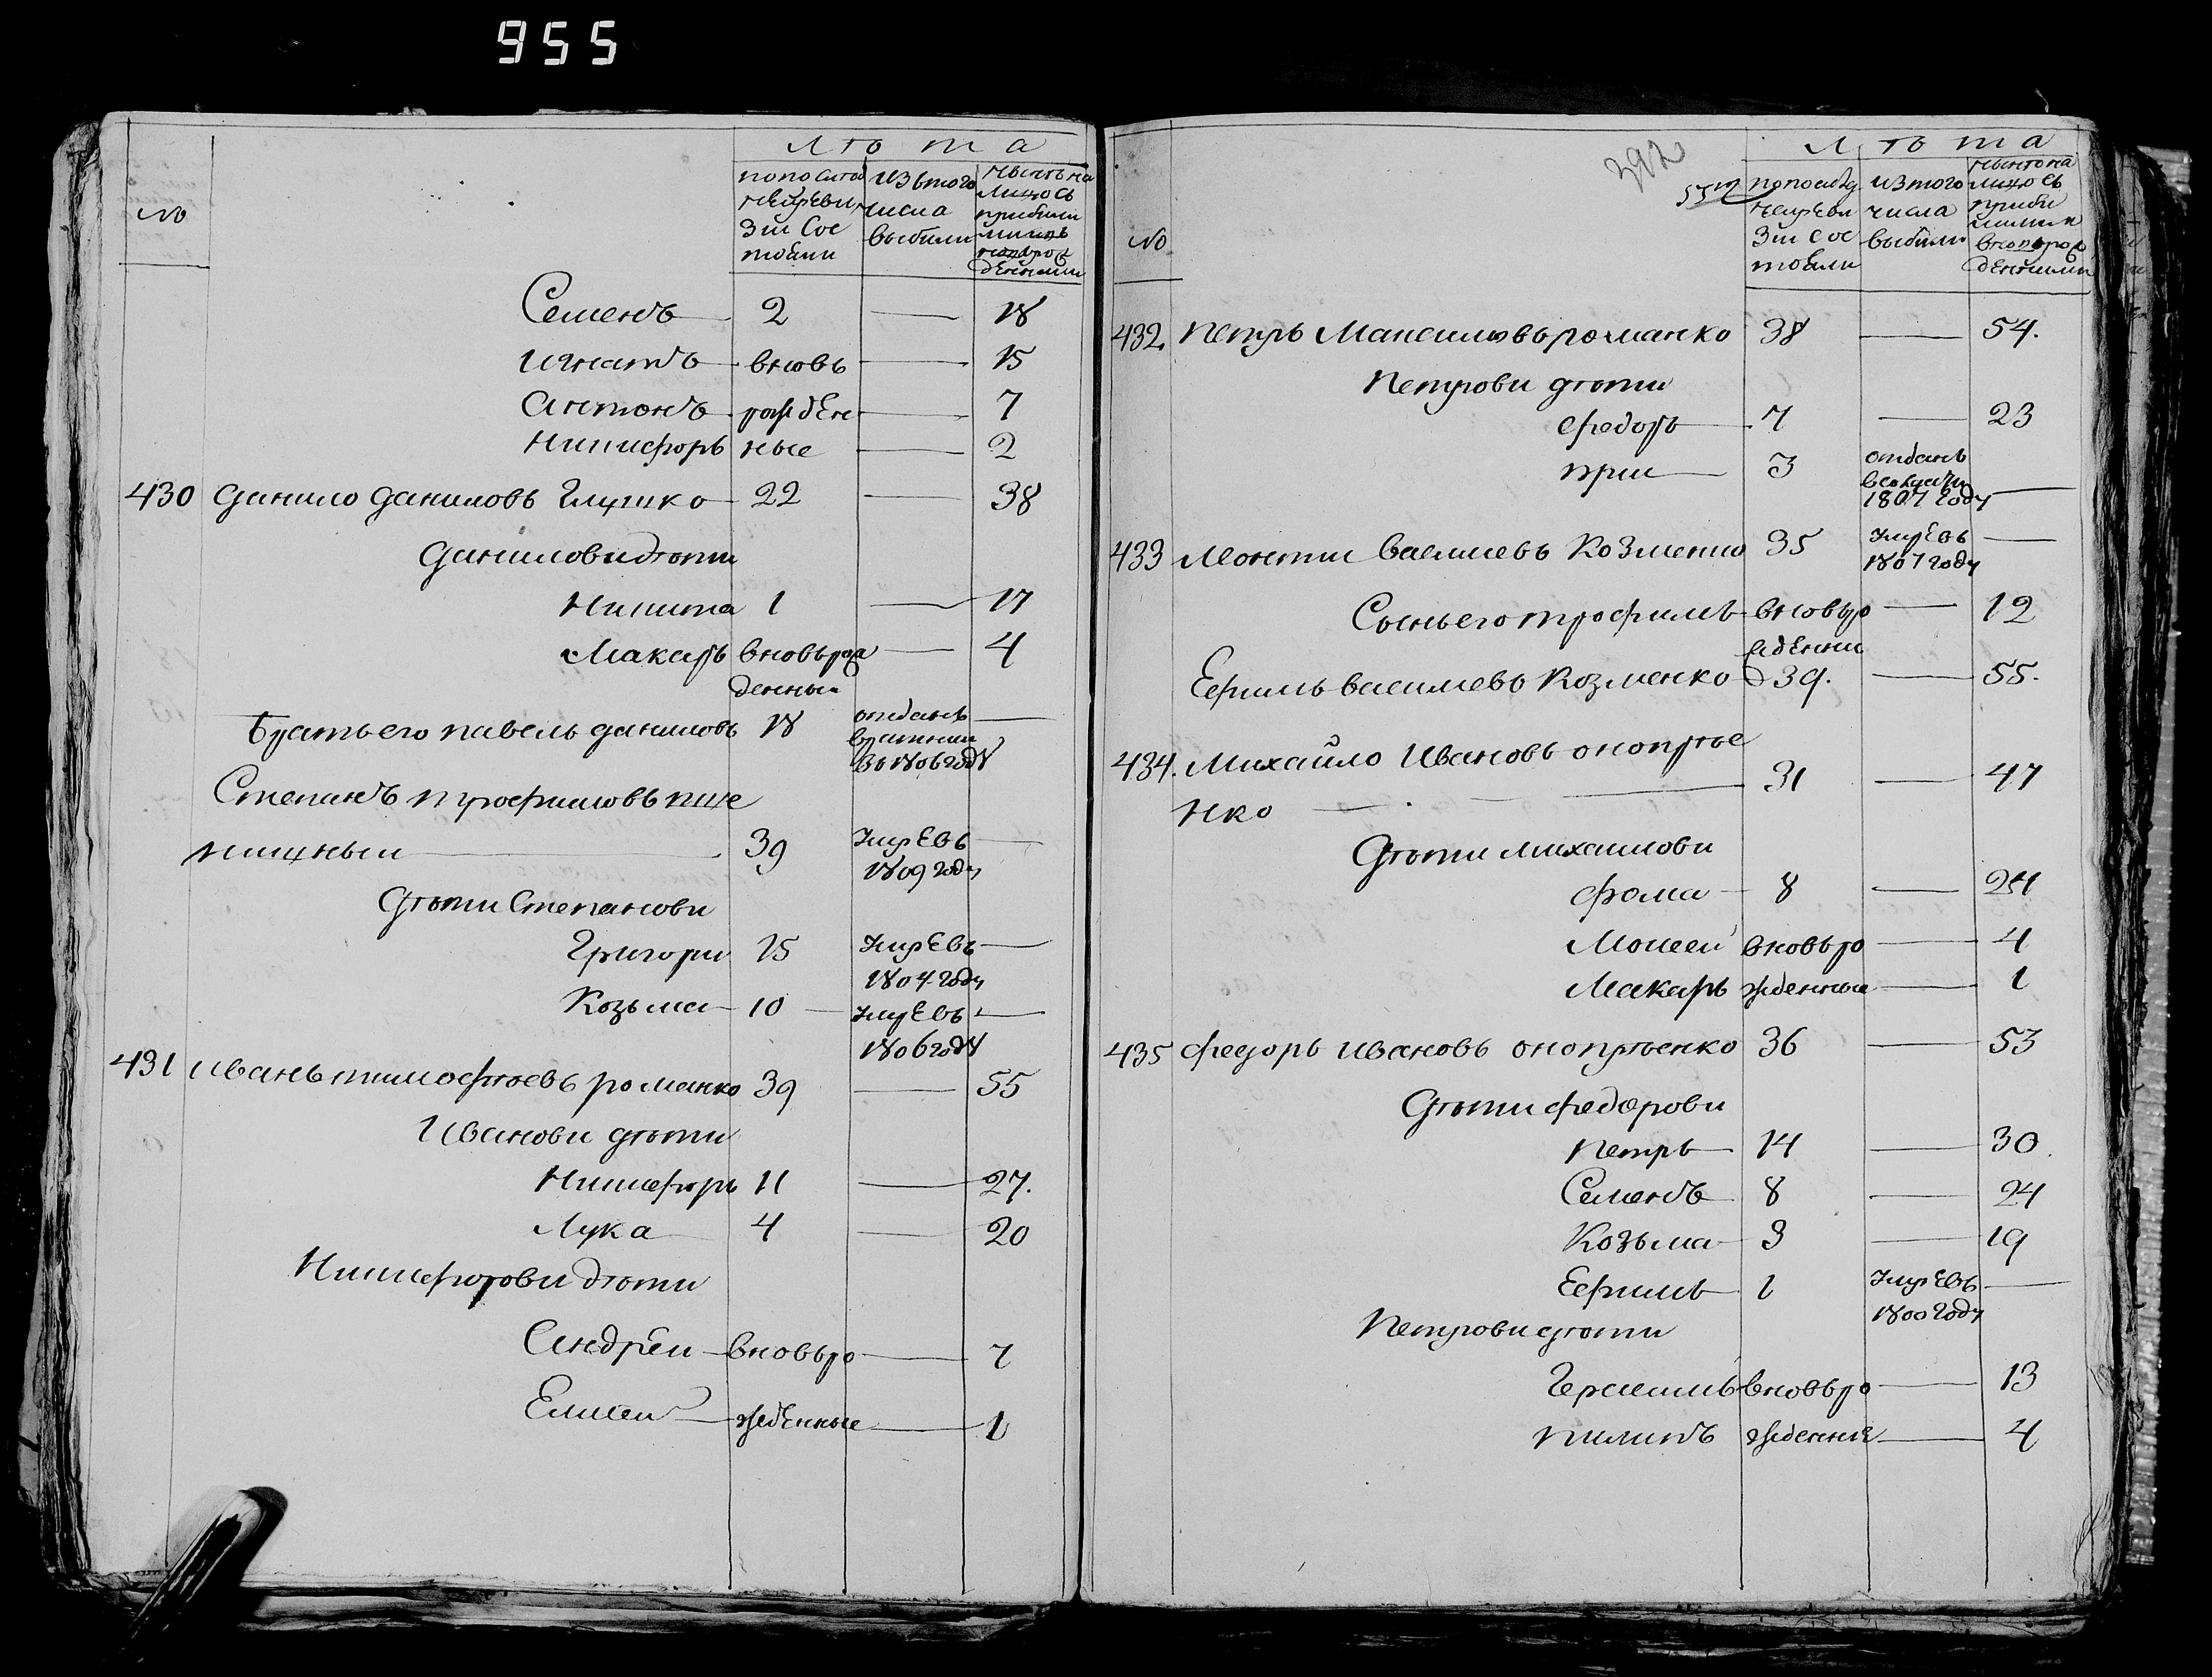 955
Лѣта
№
по послѣд
ней реви
зіи сос
тояли
изъ того
числа
выбыли
нынѣ на
лицо съ
прибыли
ми и
новорож
денными
Семенъ 2 — 18
Игнатъ вновь — 15
Антонъ рожден — 7
Никифоръ ные — 2
430 Данило Даниловъ Глушко 22 — 38
Даниловы дѣти
Никита 1 — 17
Макаръ вновь рож — 4
денный
Братъ его Павелъ Даниловъ 18 отданъ —
въ 1806 году
Степанъ Трофимовъ пше
ничный 39 умре въ —
1809 году
Дѣти Степановы
Григори 15 умре въ —
1804 году
Козьма 10 — умре въ —
1806 году
431 Иванъ Тимофѣевъ Романко 39 — 55
Ивановы дѣти
Никифоръ 11 — 27.
Лука 4 — 20
Никифоровы дѣти
Андрей вновь ро — 7
Елисей жденные — 1
392
552
Лѣта
№
по послѣд
ней реви
зіи сос
тояли
изъ того
числа
выбыли
нынѣ на
лицо съ
прибы
лыми и
вновь рож
денными
432. Петръ Максимовъ Романко 38 — 54.
Петровы дѣти
Федоръ 7 — 23
3 отданъ
1807 году —
433 Леонти Васильевъ Козменко 35 умре въ —
1807 году
Сынъ его Трофимъ вновь ро — 12
жденны
Ефимъ Васильевъ Козменко 39. — 55.
434. Михайло Ивановъ Оноприе
нко — 31 — 47
Дѣти Михаиловы
Фома 8 — 24
Мосей вновь ро — 4
Макаръ жденные — 1
435 Федоръ Ивановъ Оноприенко 36 — 53
Дѣти Федоровы
Петръ 14 — 30.
Семенъ 8 — 24
Козьма 3 — 19
Ефимъ 1 умре въ —
1800 году
Петровы дѣти
Герасимъ вновь ро — 13
Пилипъ жденные — 4